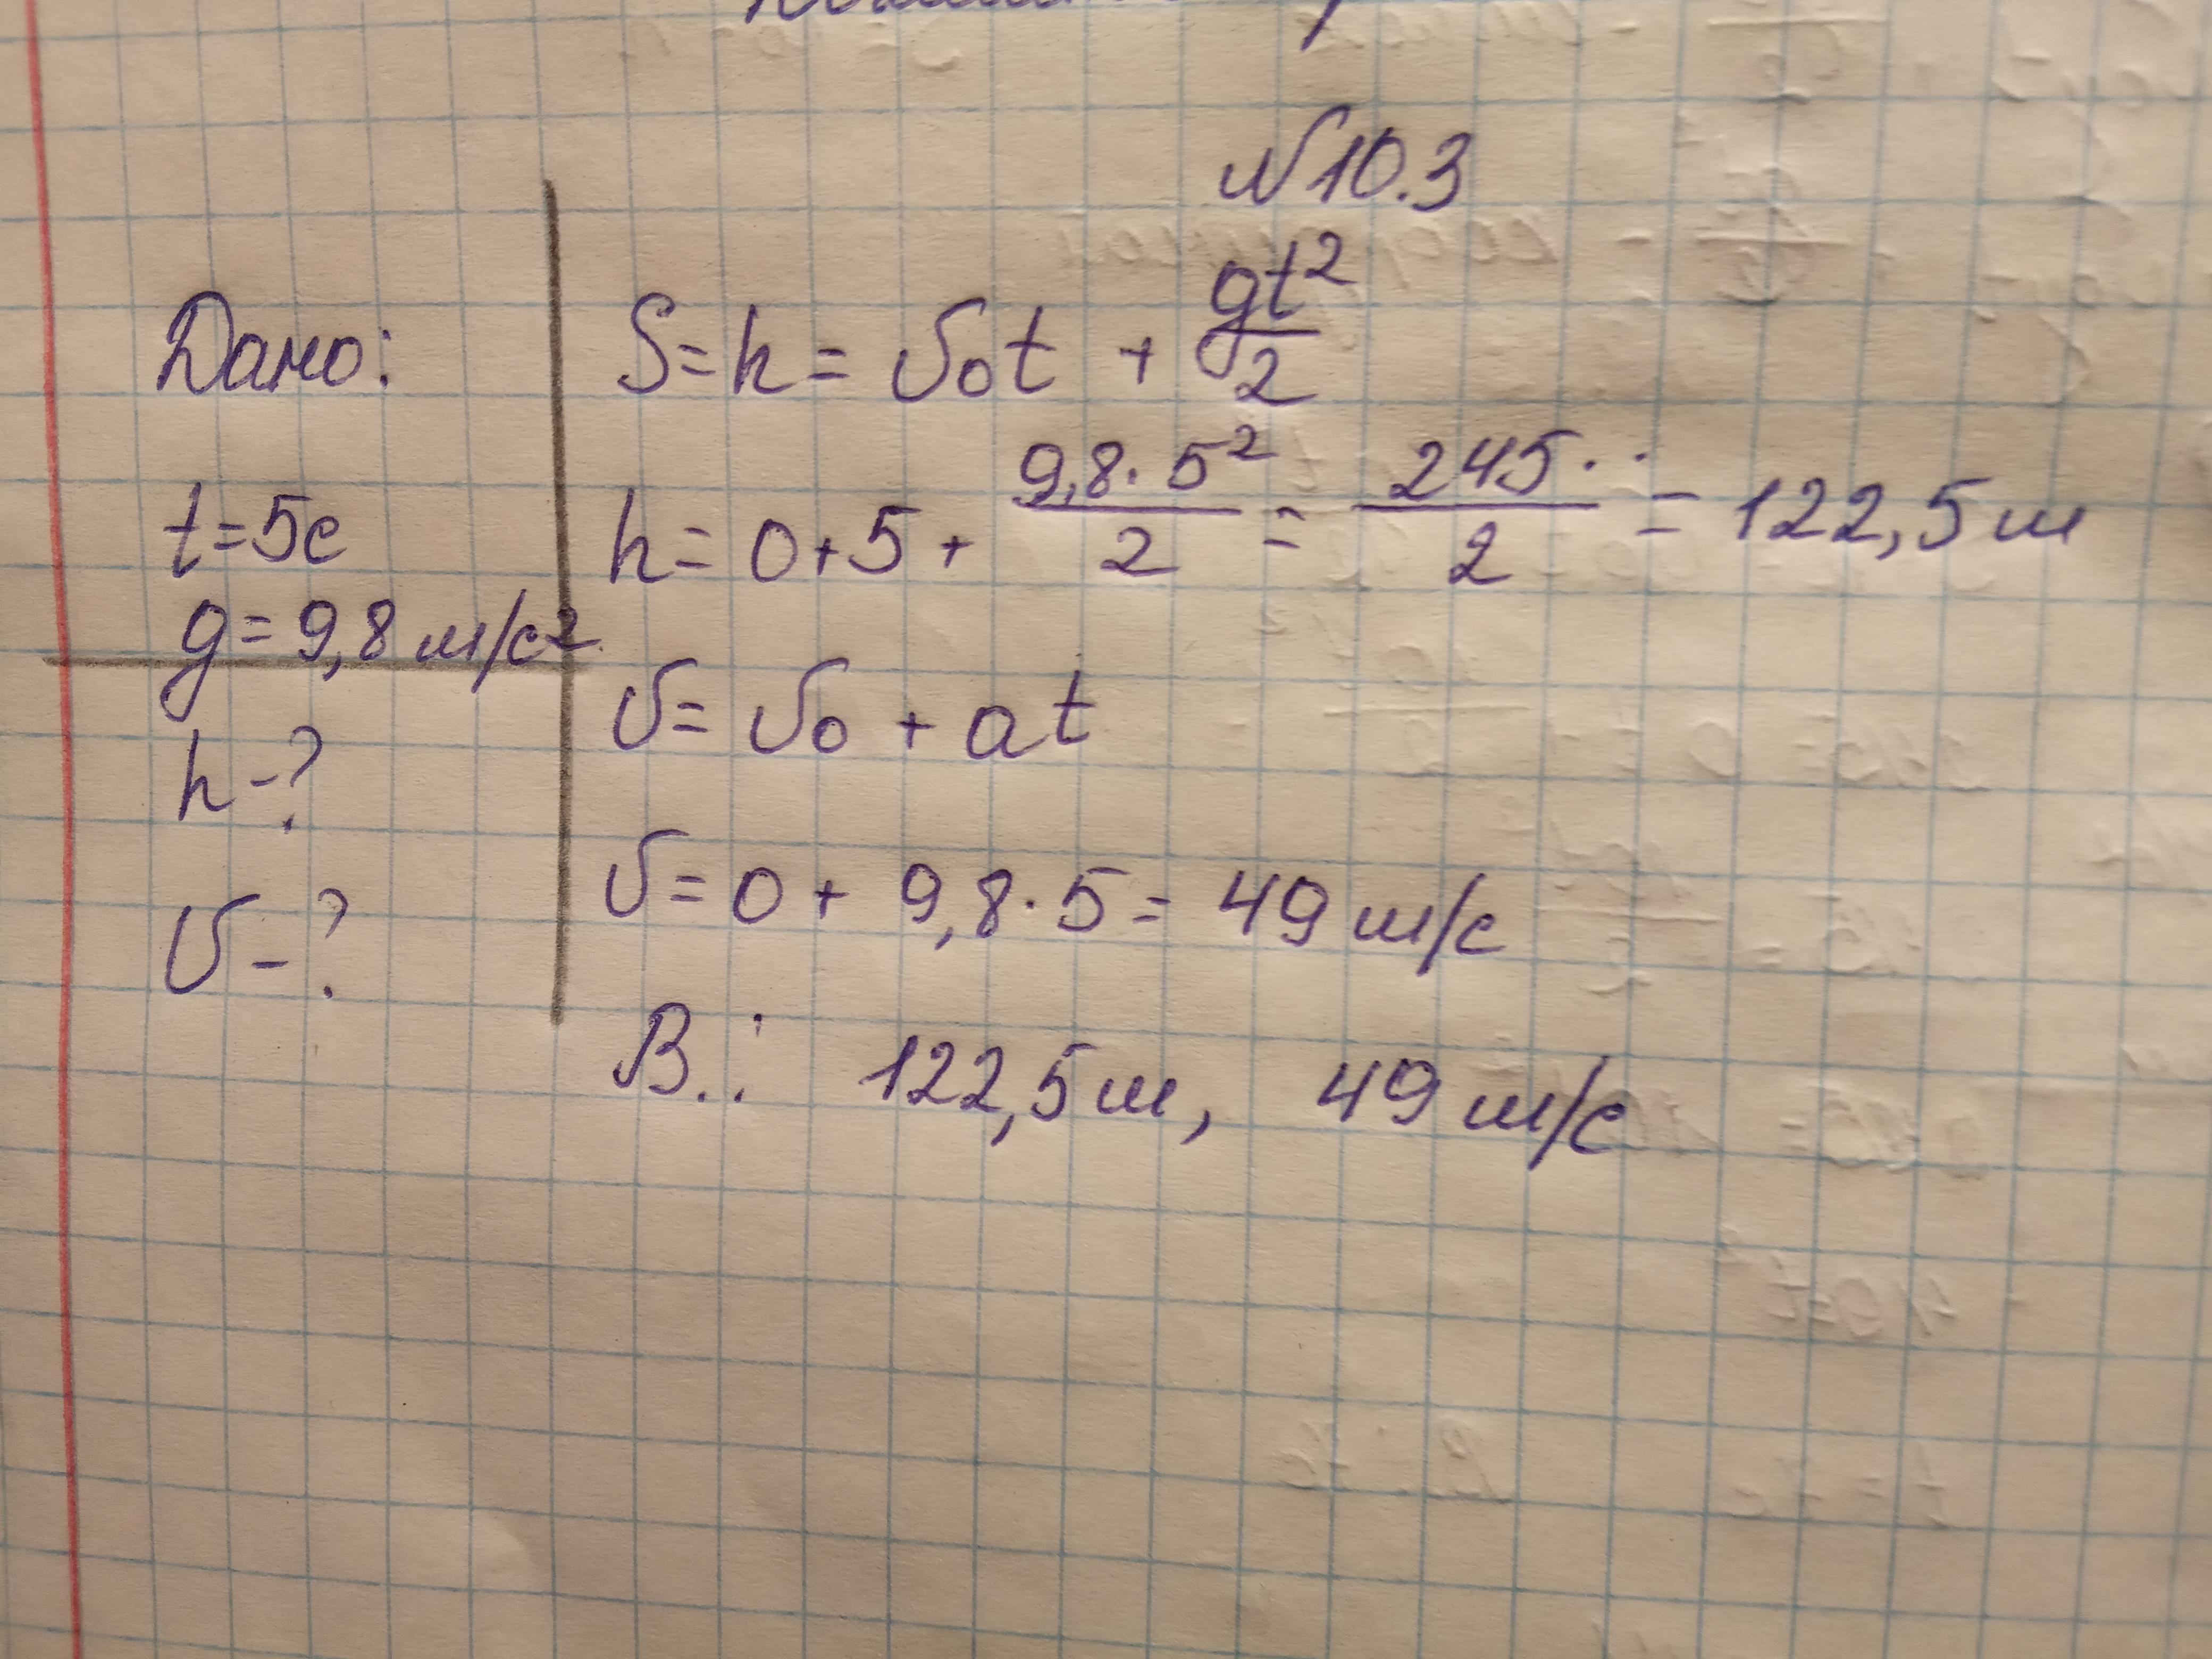 №10.3
Дано:
t=5c
g=9,8 м/с²
h-?
υ-?
S=h= υ₀t + gt²/2
h= 0+5+ 9,8·5²/2 = 245··/2 = 122,5м
υ= υ₀ + at
υ=0+ 9,8·5= 49 м/с
В.: 122,5м, 49 м/с